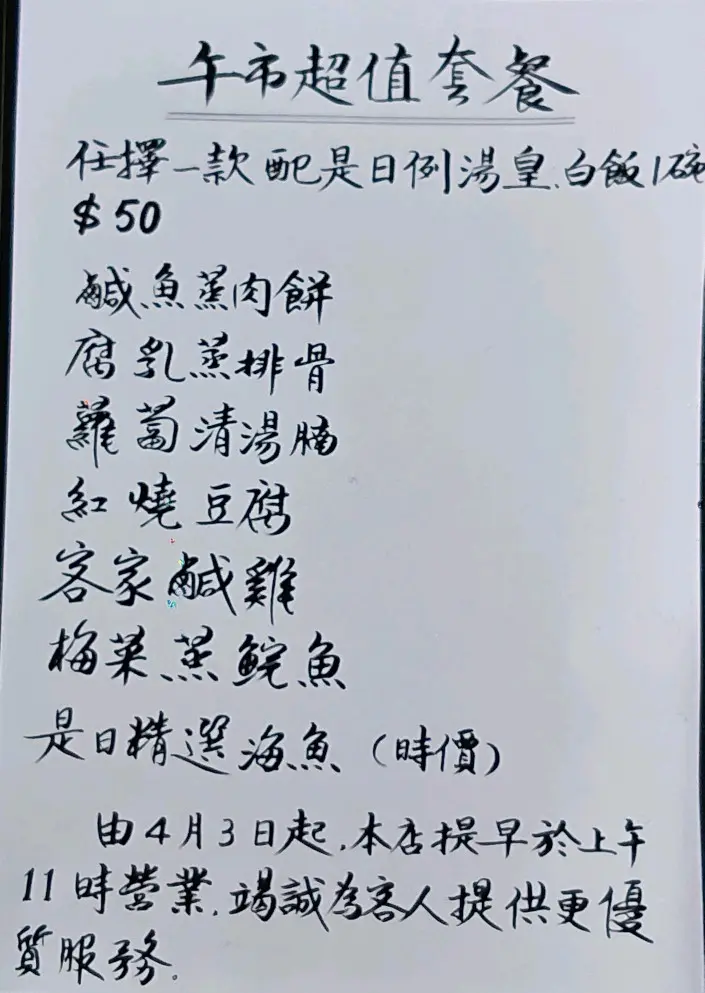 午市超值套餐
任擇一款配是日例湯皇.白飯1碗
$50
鹹魚蒸肉餅
腐乳蒸排骨
蘿蔔清湯腩
紅燒豆腐
客家鹹雞
梅菜蒸鯇魚
是日精選海魚(時價)
由4月3日起.本店提早於上午
11時營業.竭誠為客人提供更優
質服務.